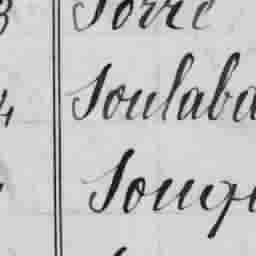 3 Sorre
4 Soulaba
Souge